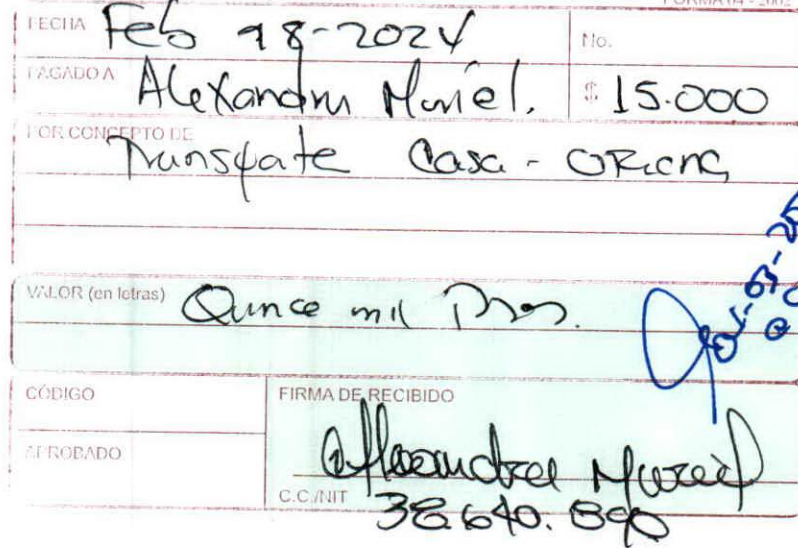 FORMA 04 - 2002
FECHA Feb 18-2024 No.
PAGADO A Alexandra Muriel. $ 15.000
POR CONCEPTO DE
Transpate Casa -
VALOR (en letras) Quince mil Pesos.
CÓDIGO FIRMA DE RECIBIDO
APROBADO Alexandra Muriel
C.C./NIT 38.640.890